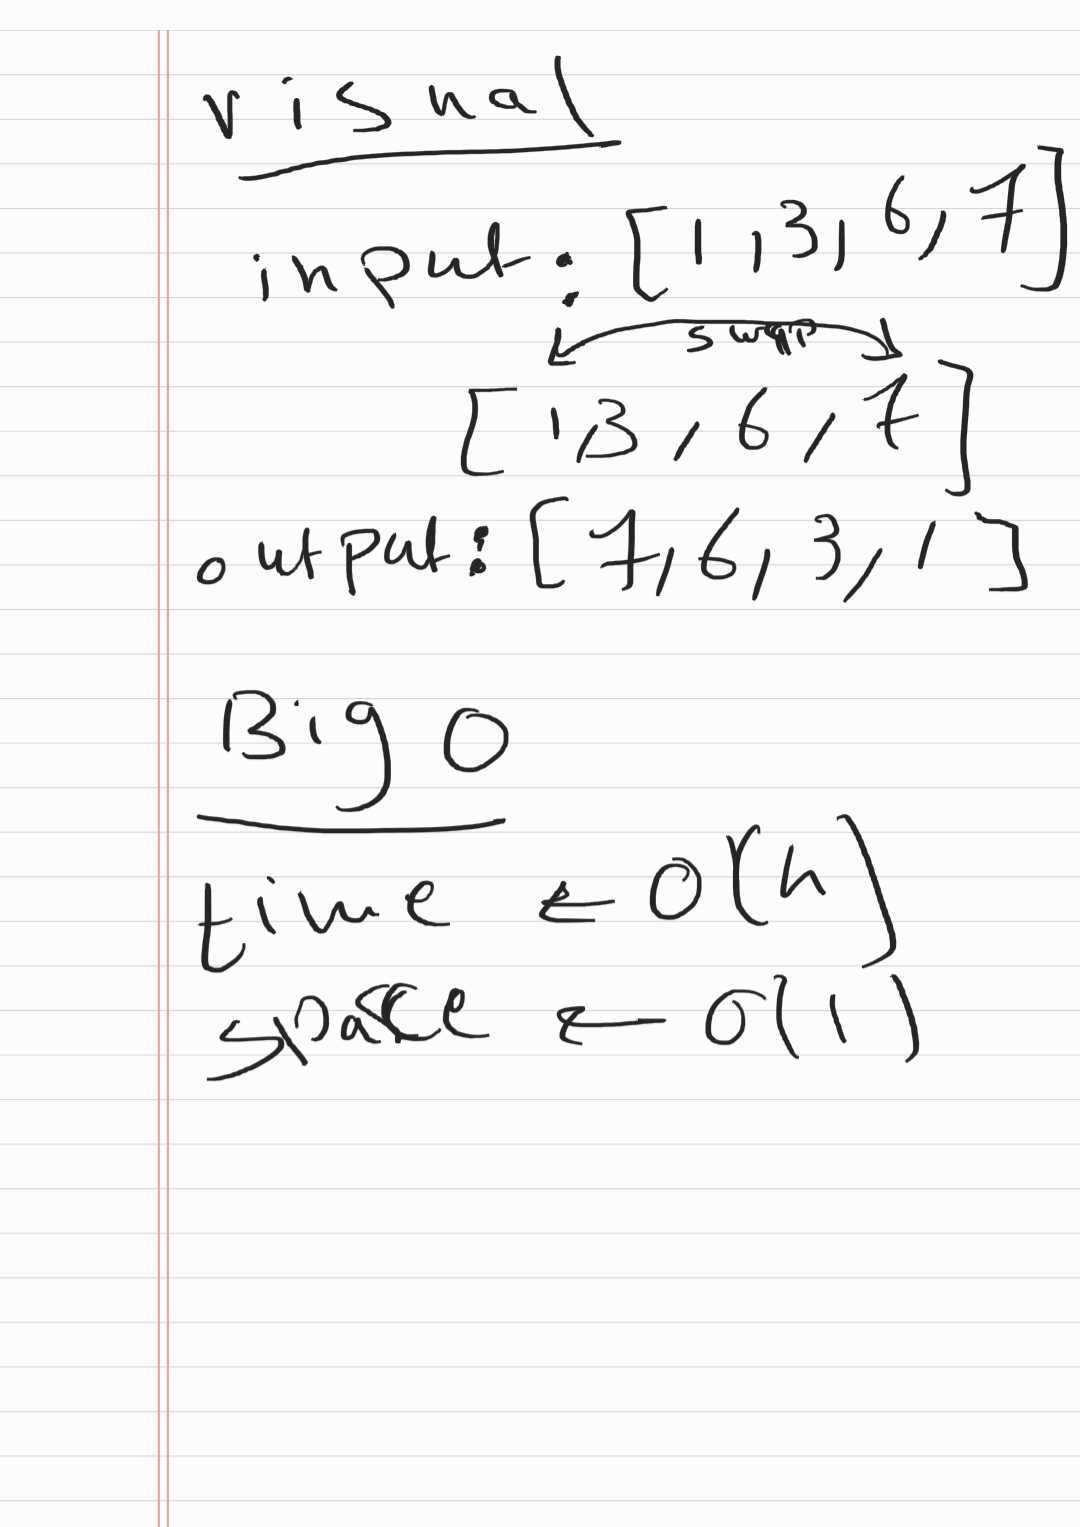 visual
input: [1,3,6,7]
swap
[1,3,6,7]
output: [7,6,3,1]
Big O
time ← O(n)
space ← O(1)